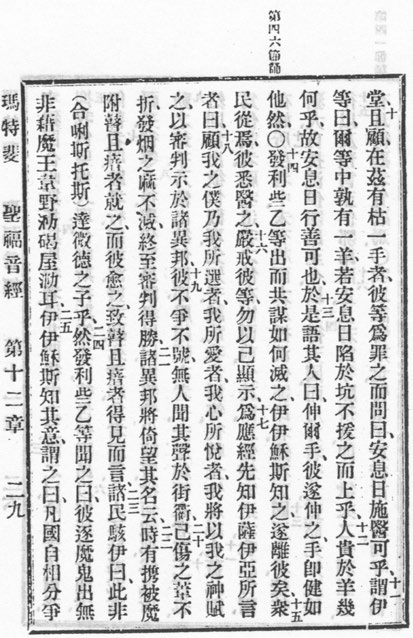 第四六節歸
十堂且顧在茲有枯一手者彼等爲罪之而問曰安息日施醫可乎謂伊十一
等曰爾等中孰有一羊若安息日陷於坑不援之而上乎十二人貴於羊幾
何乎故安息日行善可也十三於是語其人曰伸爾手彼遂伸之手卽健如
他然〇十四發利些乙等出而共謀如何滅之十五伊伊穌斯知之遂離彼矣衆
民從焉彼悉醫之十六嚴戒彼等勿以己顯示十七爲應經先知伊薩伊亞所言
者曰十八顧我之僕乃我所選者我所愛者我心所悅者我將以我之神賦
之以審判示於諸異邦十九彼不爭不號無人聞其聲於街衢二十已傷之葦不
折發烟之麻不滅終至審判得勝二一諸異邦將倚望其名云二二時有攜被魔
附瞽且瘖者就之而彼愈之致瞽且瘖者得見而言二三諸民駭伊曰此非
(合唎斯托斯)達微德之子乎二四然發利些乙等聞之曰彼逐魔鬼出無
非藉魔王葦野泐碣屋泐耳二五伊伊穌斯知其意謂之曰凡國自相分爭
瑪特斐 聖福音經 第十二章 二九